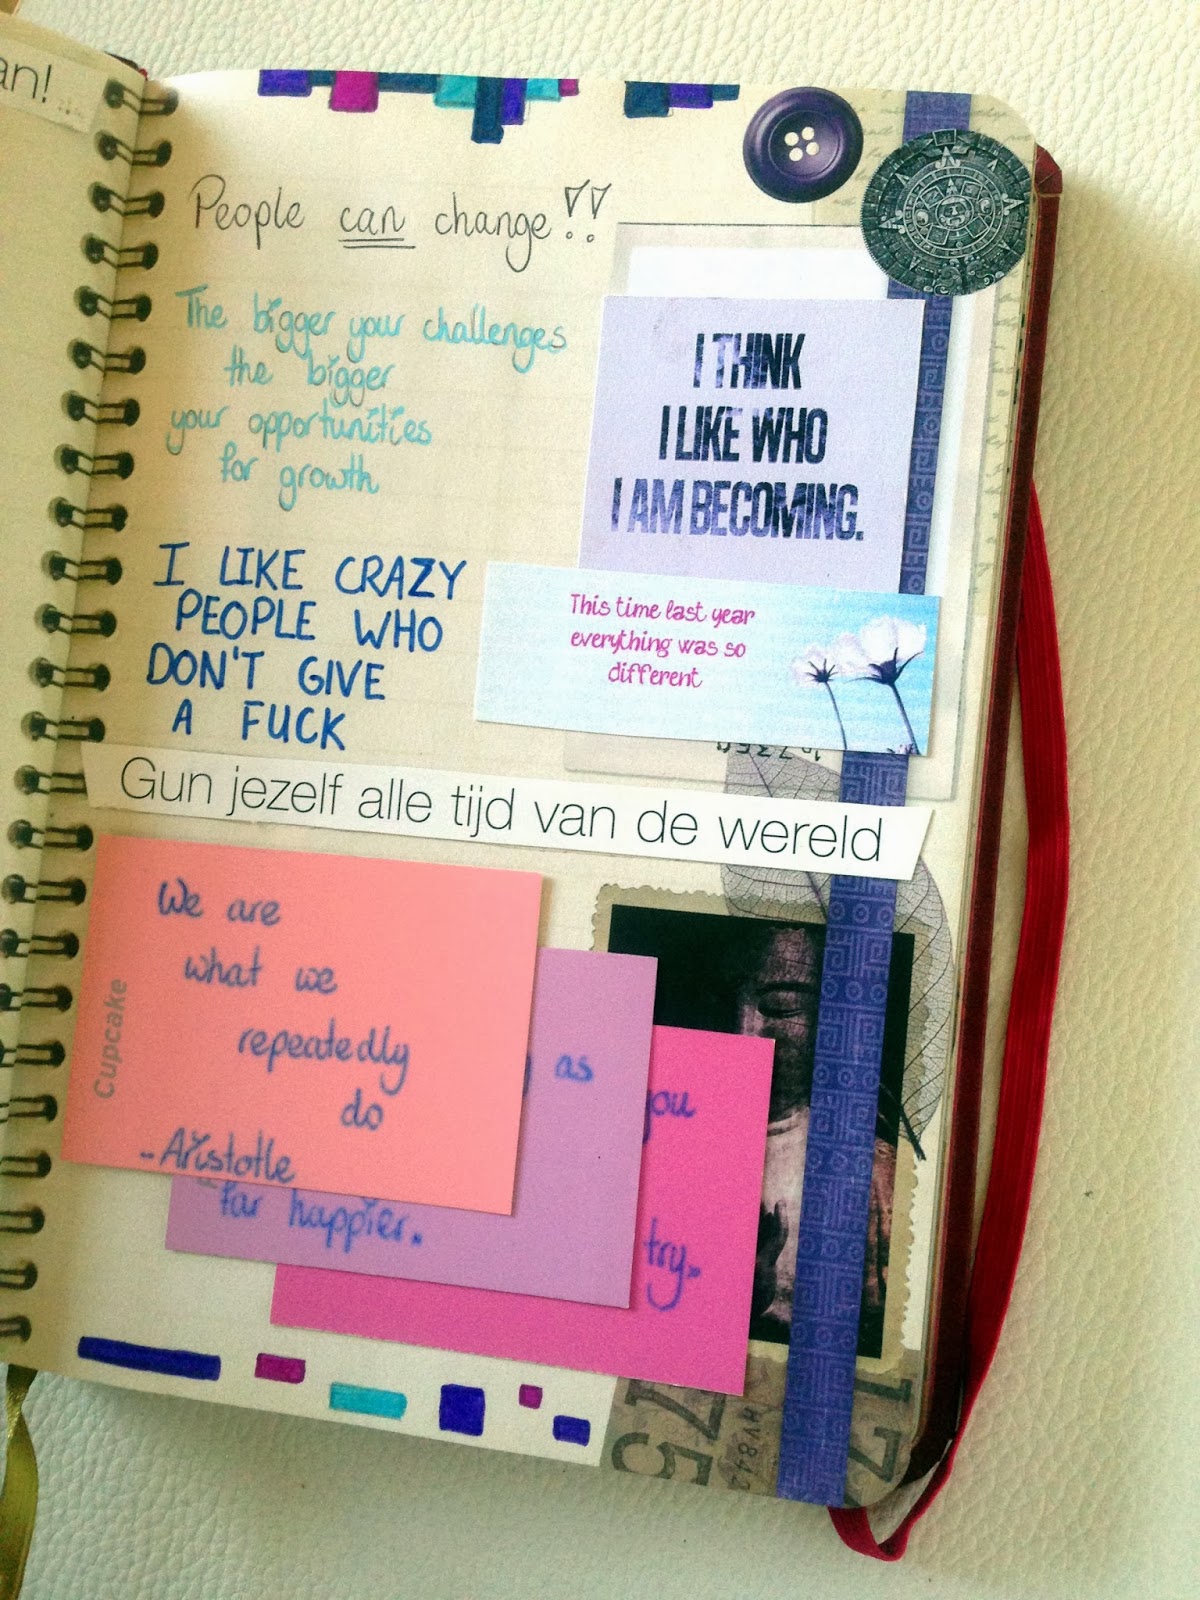 an!
People can change!!
The bigger your challenges
the bigger
your opportunities
for growth
I THINK
I LIKE WHO
I AM BECOMING.
I LIKE CRAZY
PEOPLE WHO
DON'T GIVE
A FUCK
This time last year
everything was so
different
Gun jezelf alle tijd van de wereld
We are
what we
repeatedly
do
-Aristotle
Cupcake
as
far happier.
you
try.
75
17